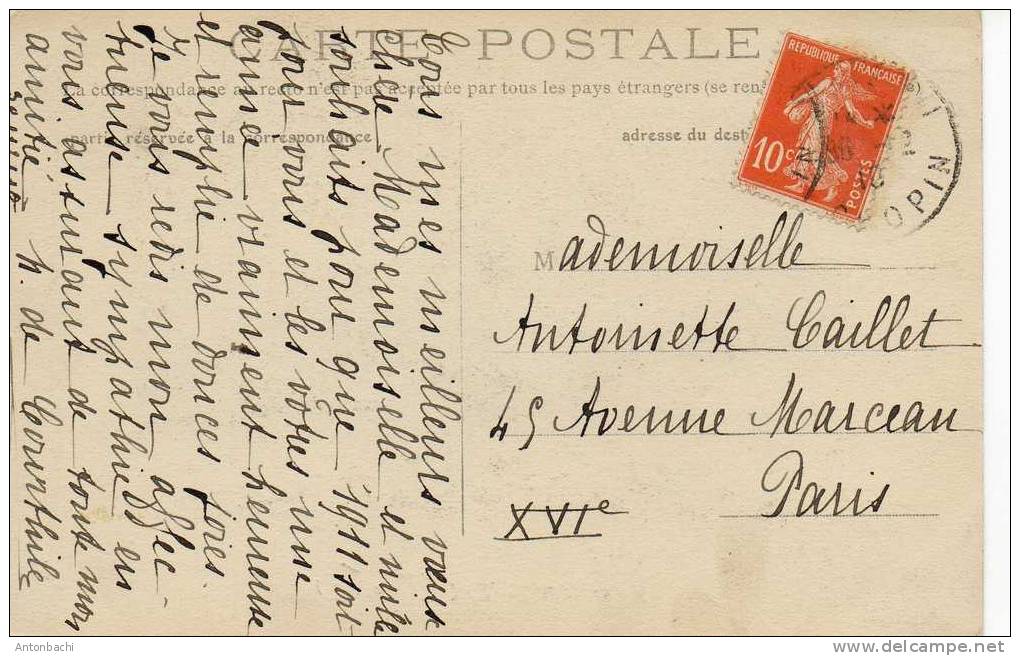 CARTE POSTALE
La correspondance au recto n'est pas acceptée par tous les pays étrangers (se ren
partie réservée à la correspondance
adresse du dest
REPUBLIQUE FRANÇAISE
10 c
POSTES
OPIN
Mademoiselle
Antoinette Caillet
45 Avenue Marceau
Paris
XVIe
Tous mes meilleurs vœux
chère Mademoiselle et mille
souhaits pour que 1911 soit
pour vous et les vôtres une
année vraiment heureuse
et remplie de douces joies.
Je vous redis mon affec-
tueuse sympathie en
vous assurant de toute mon
amitié h. de Courtlaile
Antonbachi
www.delcampe.net